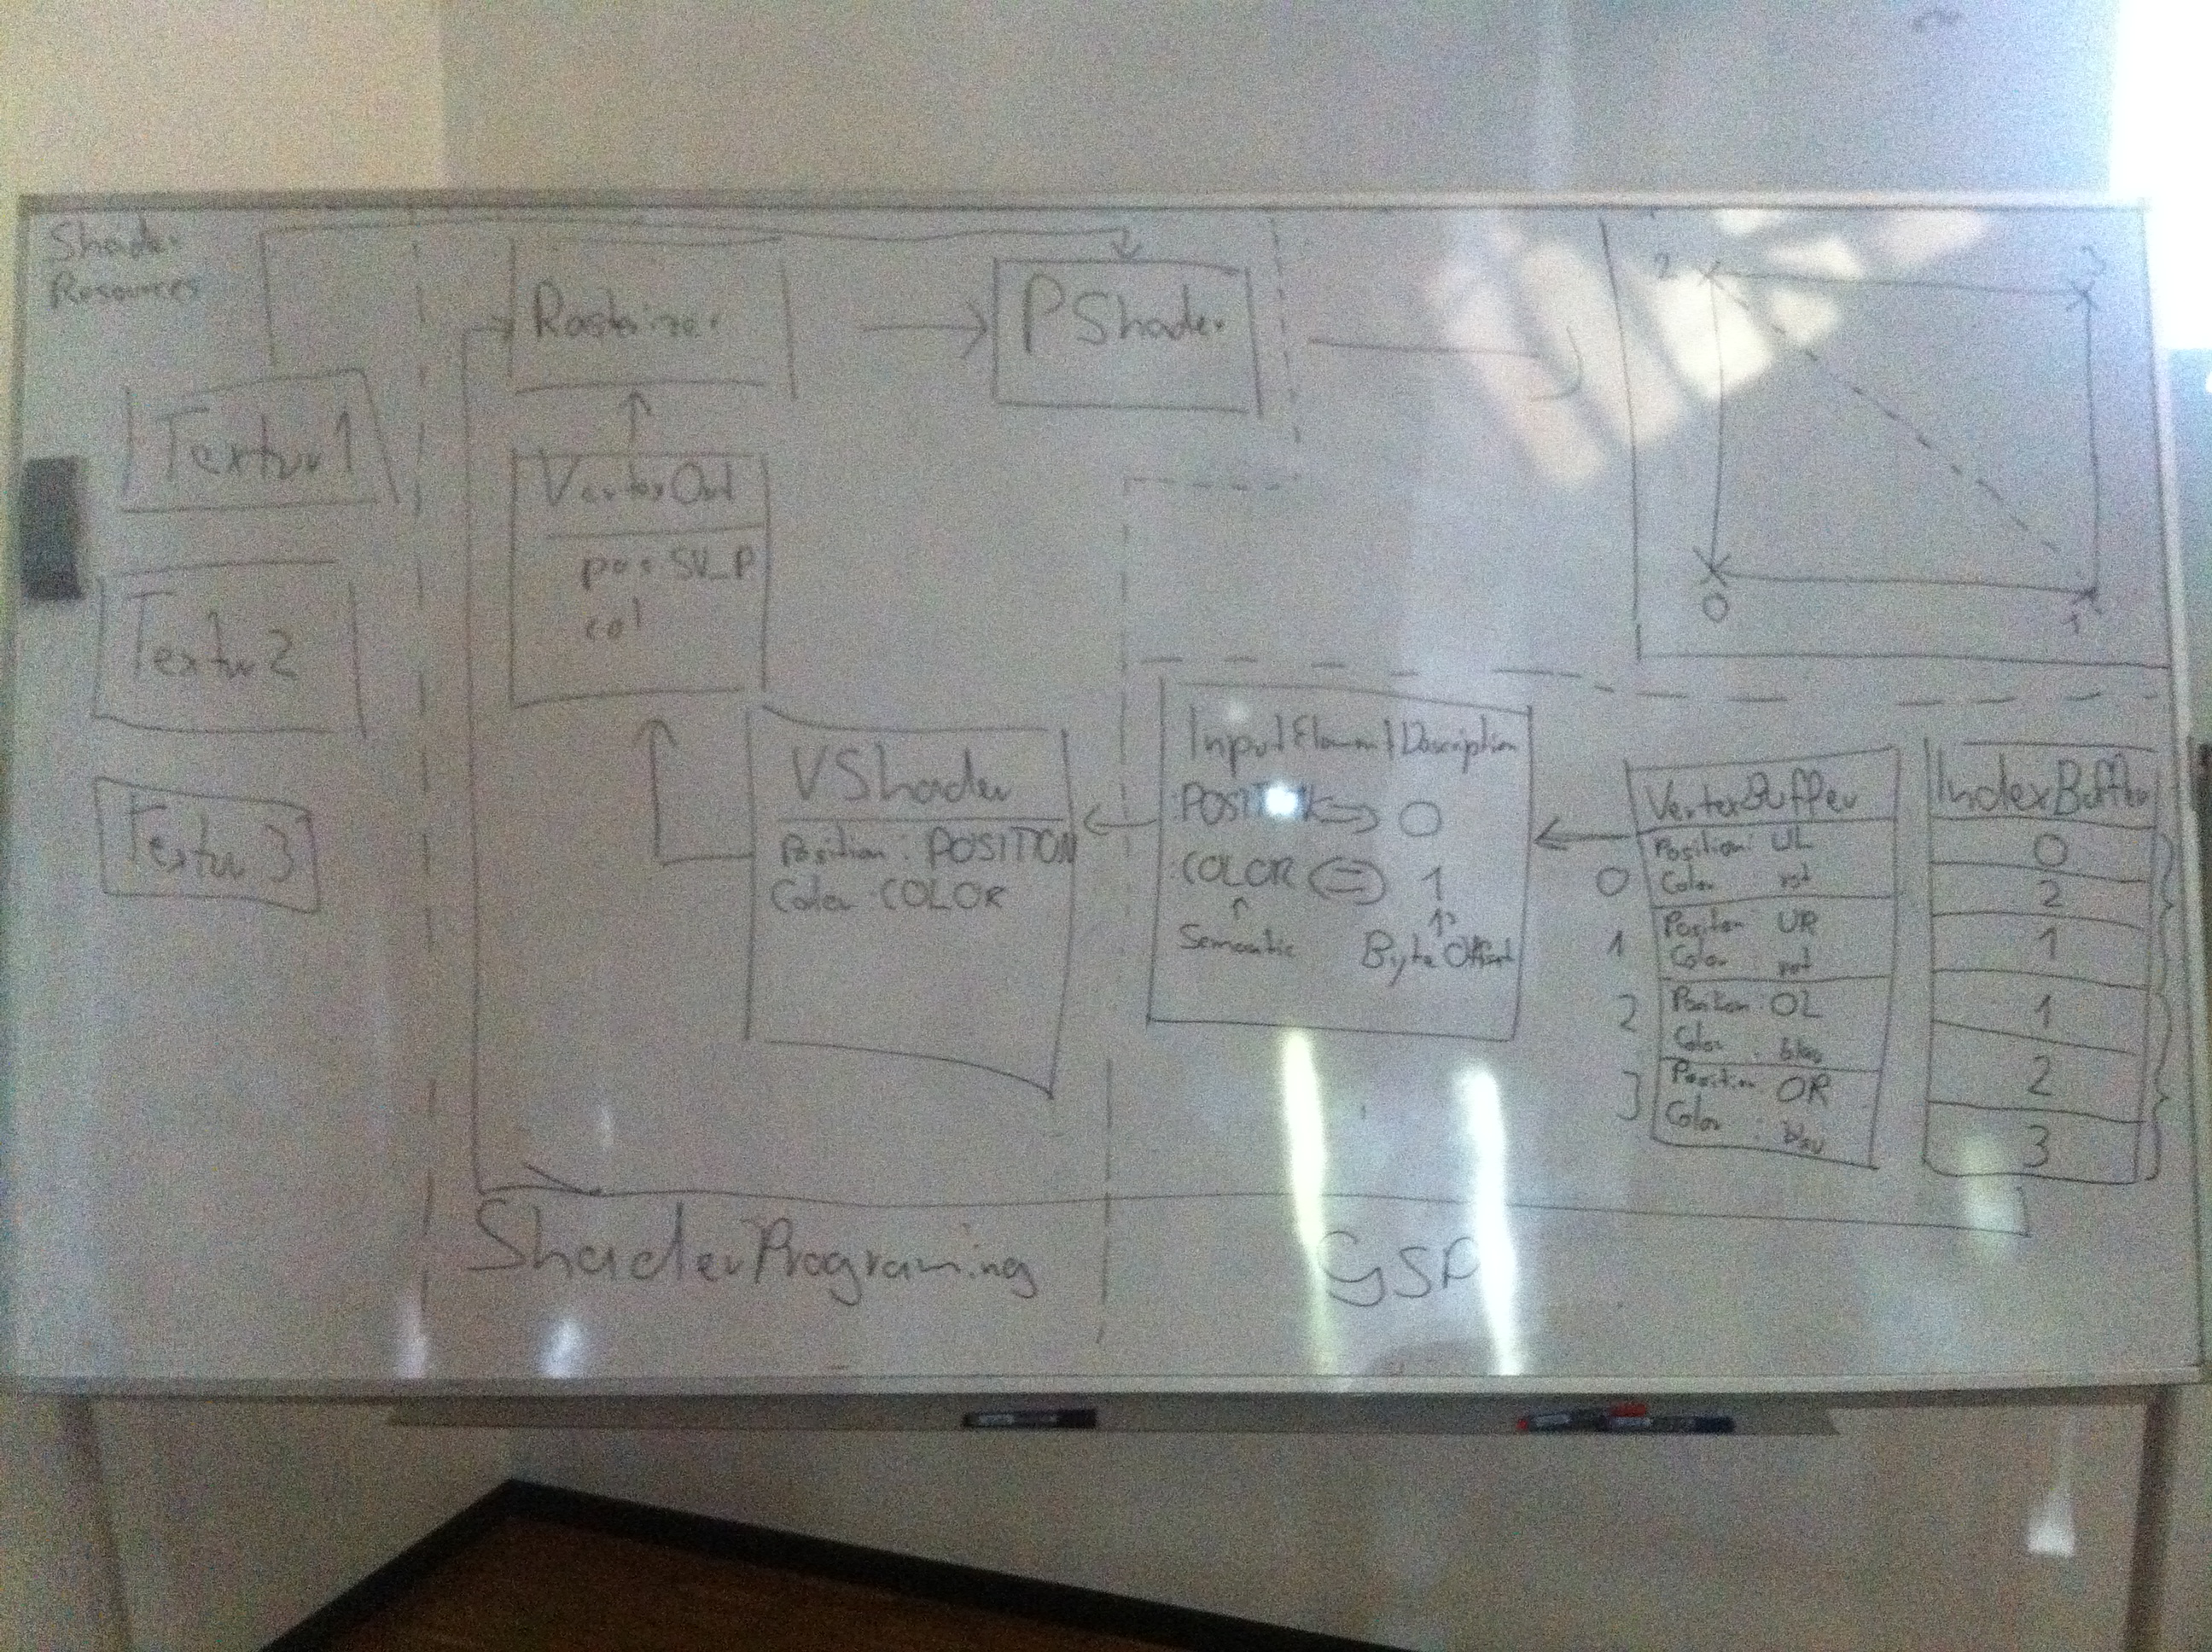 Shader
Resources
Textur 1
Textur 2
Textur 3
Rasterizer
PShader
VertexOut
pos: SV_P
col
VShader
Position : POSITION
Color : COLOR
InputElementDescription
:POSITION ⇔ 0
:COLOR ⇔ 1
Semantic
Byte Offset
VertexBuffer
0
Position: UL
Color rot
1
Position UR
Color : rot
2
Position : OL
Color : blau
3
Position OR
Color : blau
IndexBuffer
0
2
1
1
2
3
2
3
0
1
ShaderPrograming
GSP